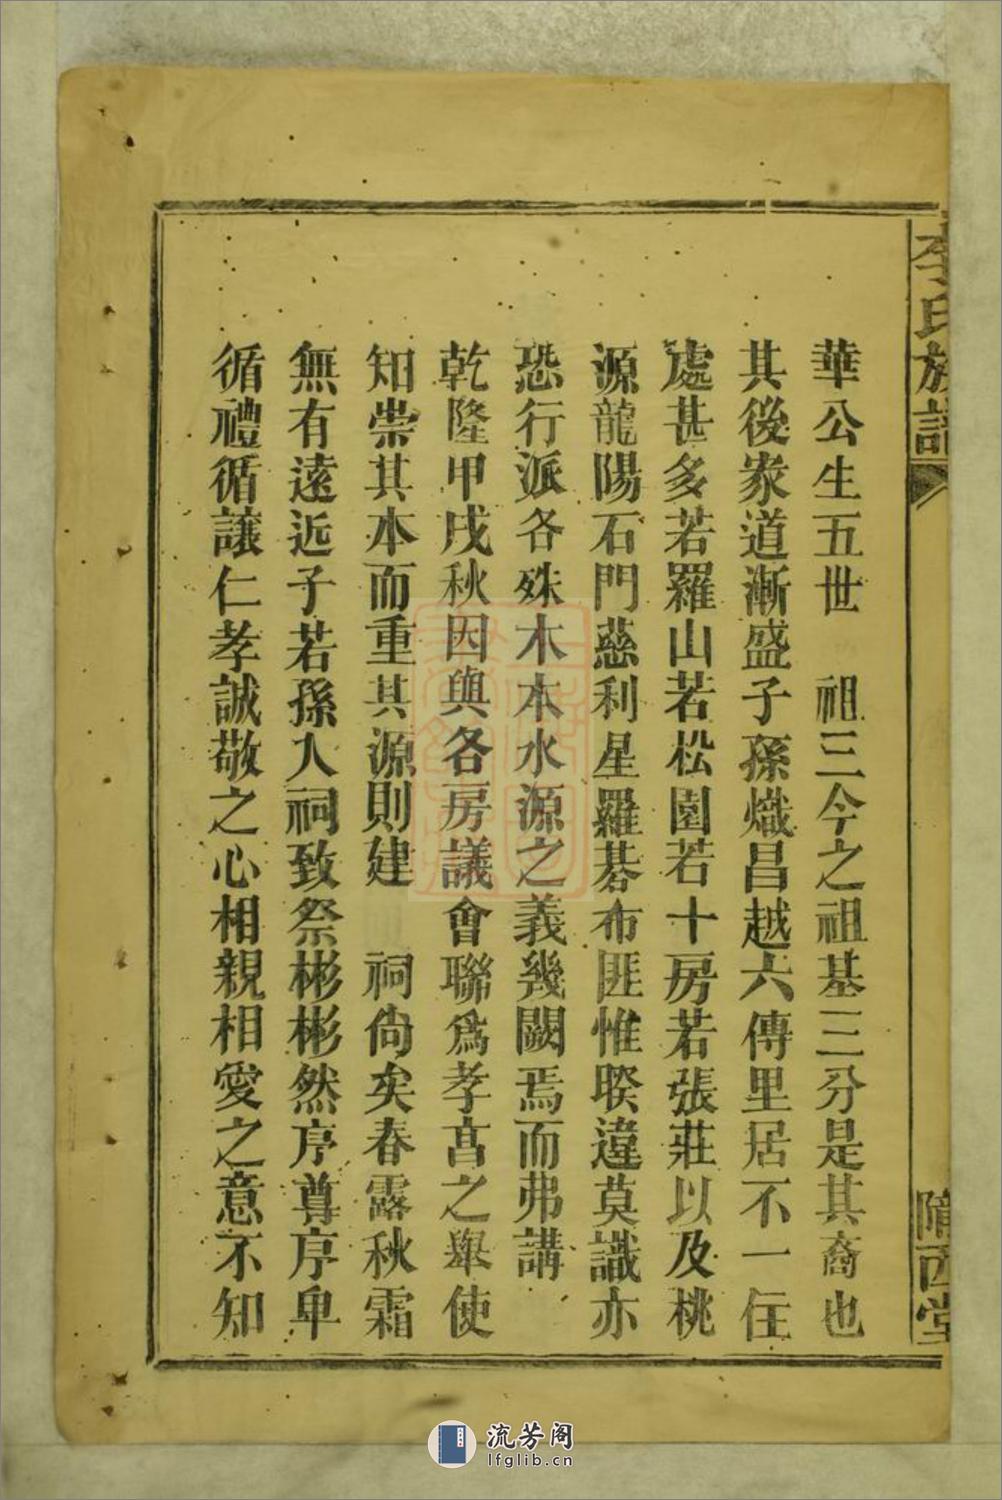 李氏族譜
隴西堂
華公生五世　祖三今之祖基三分是其裔也
其後家道漸盛子孫熾昌越六傳里居不一住
處甚多若羅山若松園若十房若張莊以及桃
源龍陽石門慈利星羅碁布匪惟暌違莫識亦
恐行派各殊木本水源之義幾闕焉而弗講
乾隆甲戌秋因與各房議會聯爲孝享之舉使
知崇其本而重其源則建　祠尙矣春露秋霜
無有遠近子若孫入祠致祭彬彬然序尊序卑
循禮循讓仁孝誠敬之心相親相愛之意不知
流芳阁
lfglib.cn